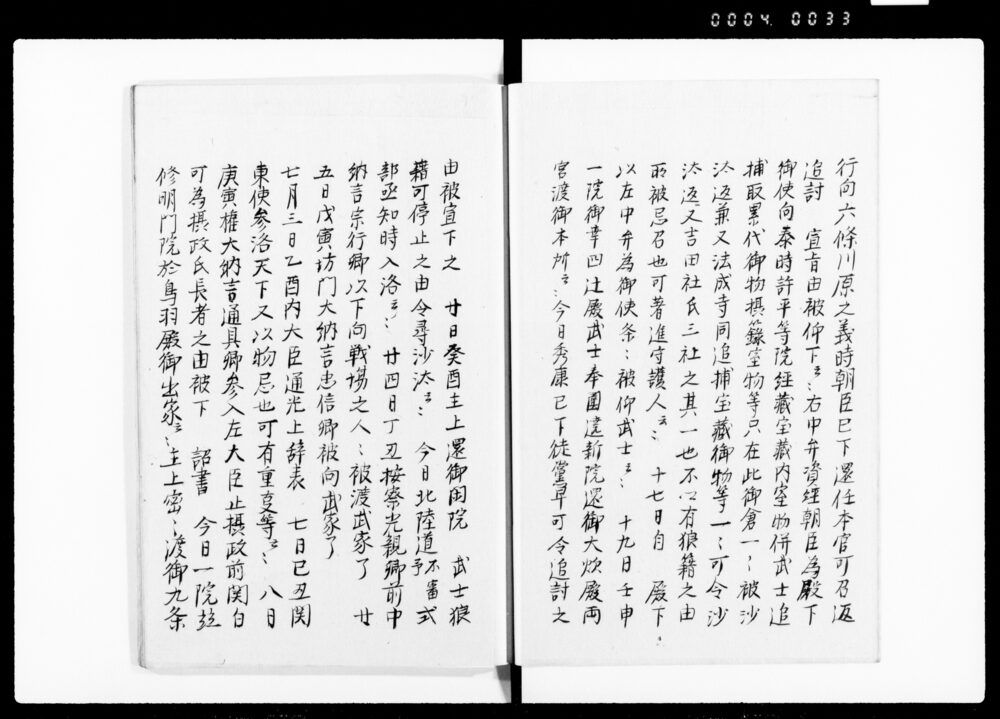 0004. 0033
行向六條川原之義時朝臣已下還任本官可召返
追討　宣旨由被仰下云〻右中弁資經朝臣為殿下
御使向泰時許平等院經藏宝藏内宝物併武士追
捕取累代御物摂籙宝物等只在此御倉一〻被沙
汰返兼又法成寺同追捕宝藏御物等一〻可令沙
汰返又吉田社氏三社之其一也不可有狼籍之由
所被忌召也可著進守護人云〻　十七日自　殿下
以左中弁為御使条〻被仰武士云〻　十九日壬申
一院御幸四辻殿武士奉圍遶新院還御大炊殿両
宮渡御本所云〻今日秀康已下徒黨早可令追討之
由被宣下之　廿日癸酉主上還御閑院　武士狼
藉可停止之由令尋沙汰云〻　今日北陸道不審式
部丞知時入洛云〻　廿四日丁丑按察光親卿前中
納言宗行卿以下向戦場之人〻被渡武家了　廿
五日戊寅坊門大納言忠信卿被向武家了
七月三日乙酉内大臣通光上辞表　七日己丑関
東使参洛天下又以物忌也可有重変等云〻　八日
庚寅権大納言通具卿参入左大臣止摂政前関白
可為摂政氏長者之由被下　詔書　今日一院並
修明門院於鳥羽殿御出家云〻主上密〻渡御九条